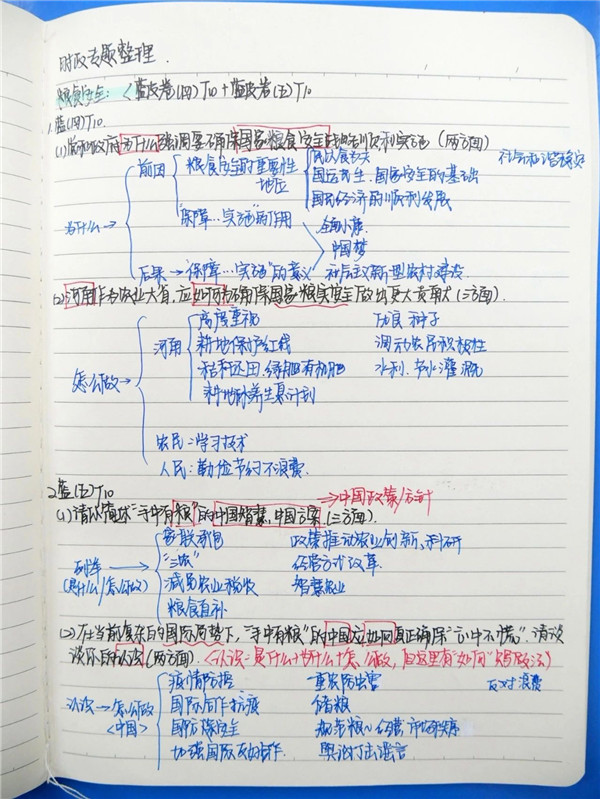 时政专题整理.
粮食安全: <蓝皮卷(四)T10 + 蓝皮卷(五)T10
1. 蓝(四)T10
(1) 政府为什么强调要确保国家粮食安全战略的顺利实施 (两方面)
为什么→
前因
粮食安全的重要性 地位
民以食为天
社会和谐稳定
国运民生. 国家安全的基础
国民经济的顺利发展
"保障…实施"的作用
全面小康
中国梦
后果→"保障…实施"的意义
社会主义新型农村建设
(2) 河南作为农业大省, 应如何为确保国家粮食安全做出更大贡献 (三方面).
怎么做→
河南
高度重视
良种子
耕地保护红线
调动农民积极性
秸秆还田. 有机肥
水利. 节水灌溉
耕地休养生息计划
农民: 学习技术
人民: 勤俭节约不浪费.
2. 蓝(五)T10
⇒中国政策/方针
(1) 请你简述"手中有粮"的中国智慧, 中国方案 (三方面).
列举→
(是什么/怎么做)
家联承包
政策推动农业创新、科研
"三农"
经营方式改革.
减免农业税收
智慧农业
粮食直补
(2) 在当前复杂的国际局势下, "手中有粮"的中国应如何真正确保"心中不慌". 请谈
谈你的认识 (两方面). <认识: 是什么+为什么+怎么做, 但这里有"如何">
认识→怎么做
<中国>
疫情防控
重灾防虫害
反对浪费
国际合作抗疫
储粮
国防保安全
市场秩序
加强国际友好合作.
舆论打击谣言